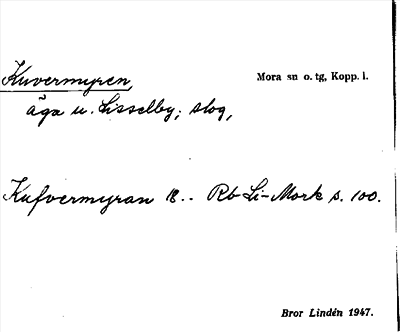 Kuvermyren,
Mora sn o. tg, Kopp. l.
äga u. Lisselby; slog,
Kufvermyran 18.. Rb Li-Mork s. 100.
Bror Lindén 1947.